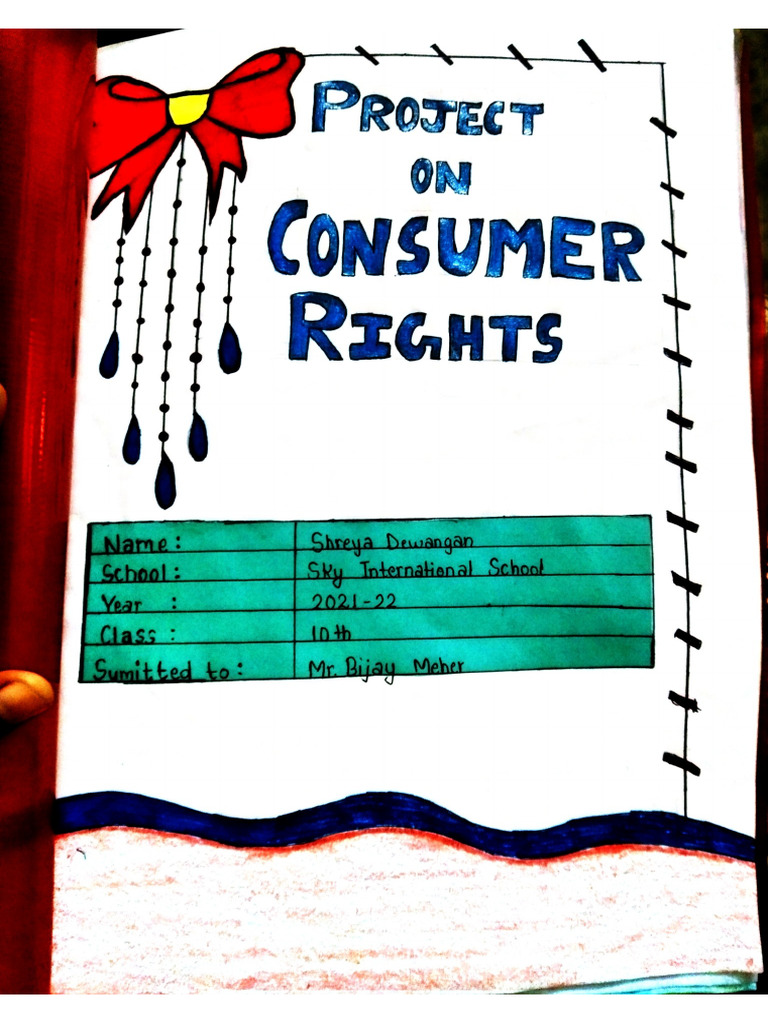 PROJECT
ON
CONSUMER
RIGHTS
Name: Shreya Dewangan
School: Sky International School
Year : 2021-22
Class : 10th
Sumitted to: Mr. Bijay Meher